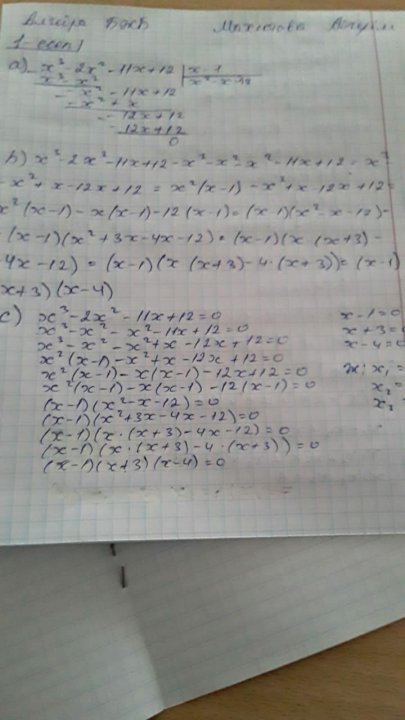 Алгебра БЖБ
1-есеп
a) x³ - 2x² - 11x + 12 | x - 1
x³ - x² x² - x - 12
- x² - 11x + 12
- x² + x
- 12x + 12
- 12x + 12
0
b) x³ - 2x² - 11x + 12 = x³ - x² - x² - 11x + 12 = x³
- x² + x - 12x + 12 = x²(x-1) - x² + x - 12x + 12 =
x²(x-1) - x(x-1) - 12(x-1) = (x-1)(x² - x - 12) =
(x-1)(x² + 3x - 4x - 12) = (x-1)(x·(x+3) -
4x - 12) = (x-1)(x·(x+3) - 4·(x+3)) = (x-1)
x+3)(x-4)
c) x³ - 2x² - 11x + 12 = 0 x - 1 = 0
x³ - x² - x² - 11x + 12 = 0 x + 3 = 0
x³ - x² - x² + x - 12x + 12 = 0 x - 4 = 0
x²(x-1) - x² + x - 12x + 12 = 0
x²(x-1) - x(x-1) - 12x + 12 = 0 Ж: x₁ =
x²(x-1) - x(x-1) - 12(x-1) = 0 x₂ =
(x-1)(x² - x - 12) = 0 x₃ =
(x-1)(x² + 3x - 4x - 12) = 0
(x-1)(x·(x+3) - 4x - 12) = 0
(x-1)(x·(x+3) - 4·(x+3)) = 0
(x-1)(x+3)(x-4) = 0